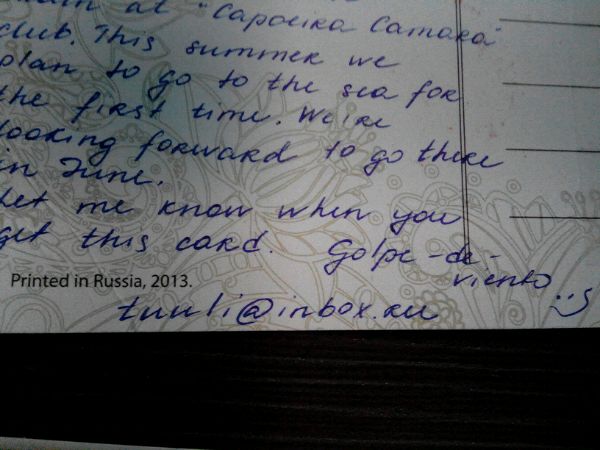 at "Capoeira Camará"
club. This summer we
plan to go to the sea for
the first time. We're
looking forward to go there
in June.
Let me know when you
get this card. Golpe-de-
viento
Printed in Russia, 2013.
tuuli@inbox.ru